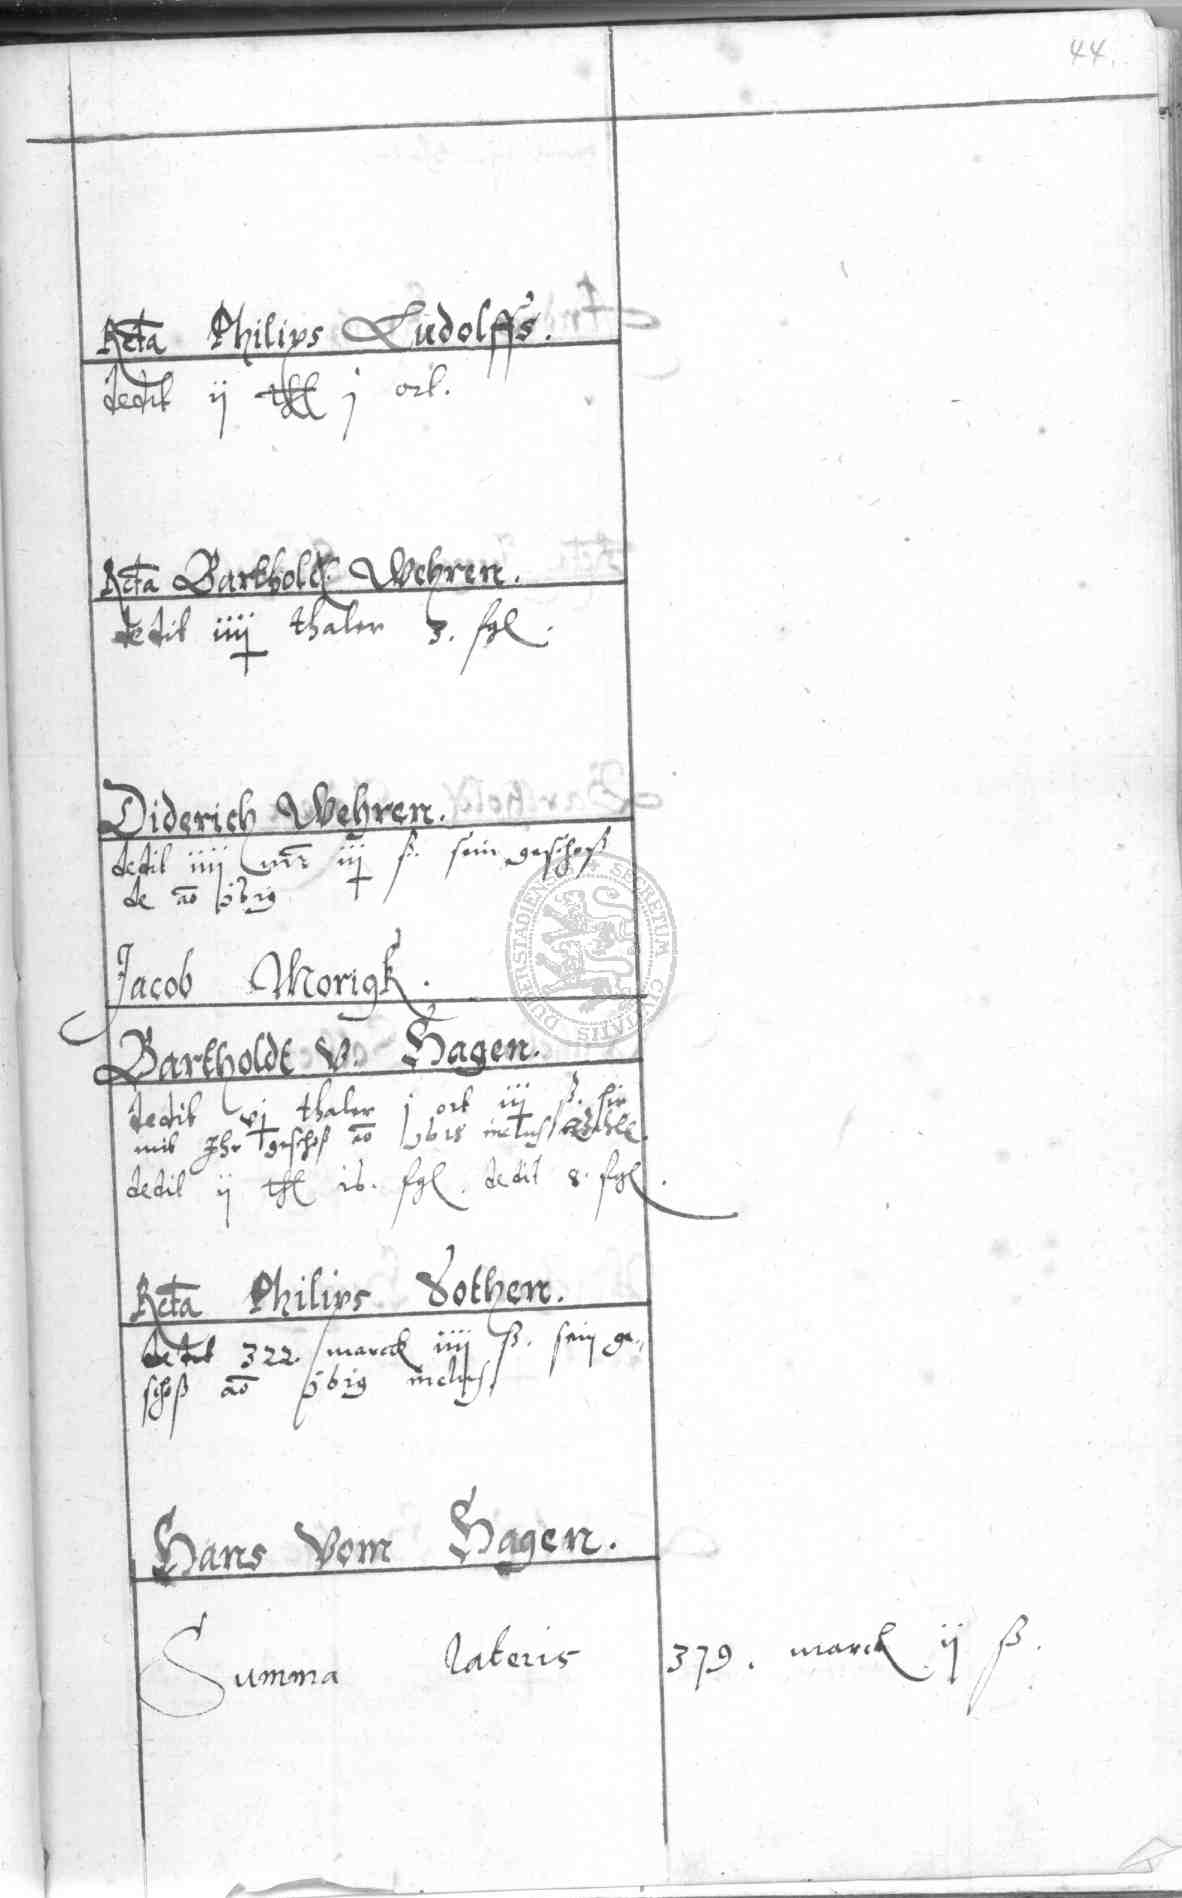 44.
Rcta Philips Ludolffs.
dedit ij thll j ort.
Rcta Bartholdt Wehren.
dedit iiij thaler 3. sgl.
Diderich Wehren.
dedit iiij mr iij ß. sein geschoß
de ao
Jacob Morigk.
Bartholdt v. Hagen.
dedit vj thaler j ort iij ß. hir
mit Ihr geschoß ao
dedit ij thl 16. sgl. dedit 8. sgl.
Rcta Philips Sothen.
dedit 322. marck iiij ß. sein ge-
schoß ao
Hans Vom Hagen.
Summa lateris 379. marck ij ß.
SECRETUM CIVITATIS DUDERSTADIENSIS